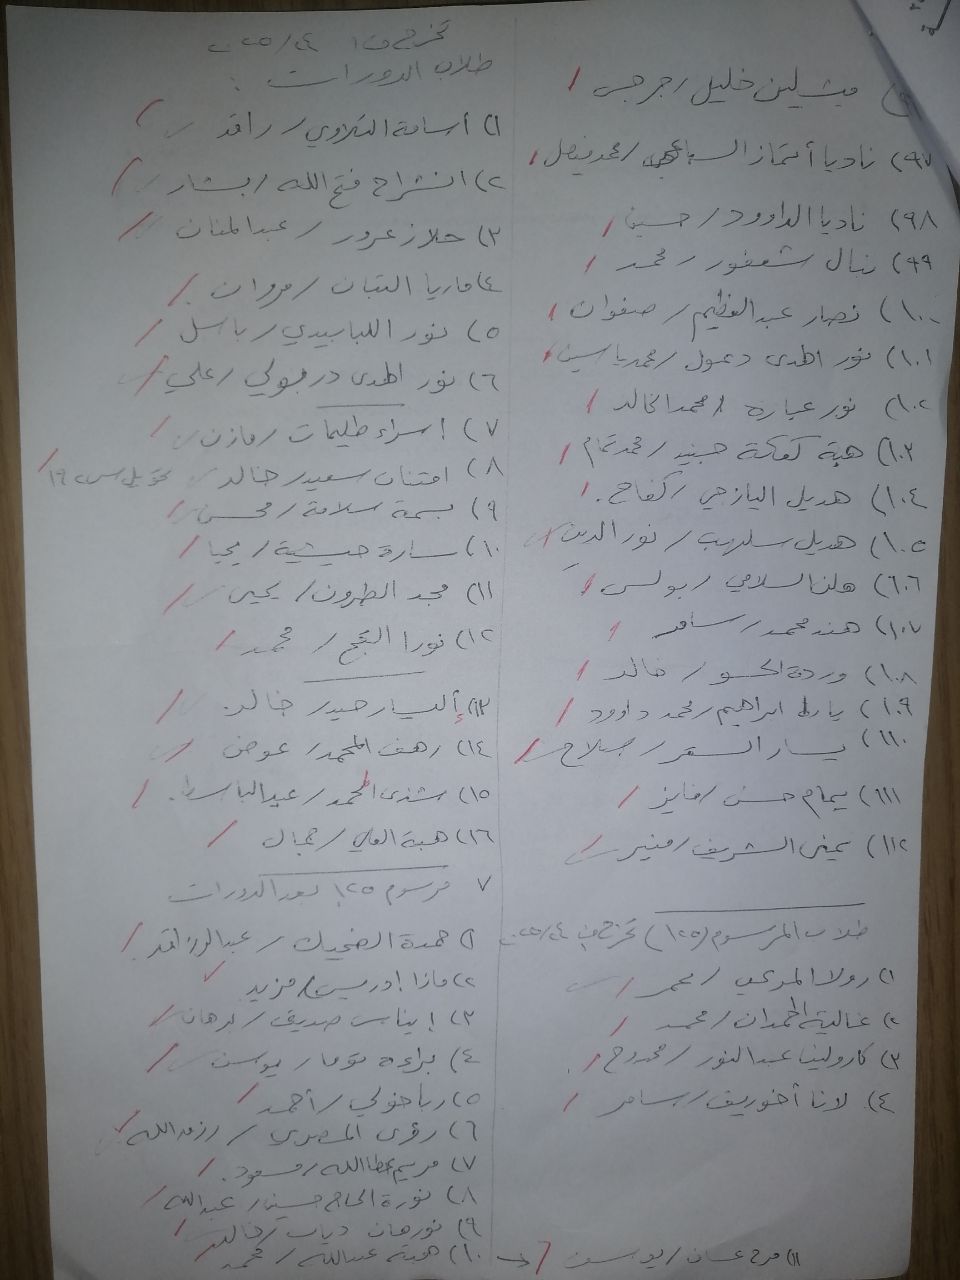 ميشلين خليل / جرجس
٩٧) ناديا أمتاز السباعي / محمد فيصل
٩٨) ناديا الداوود / حسين
٩٩) نبال شعفور / محمد
١٠٠) نصار عبد العظيم / صفوان
١٠١) نور الهدى دعبول / محمد ياسين
١٠٢) نور عبارة / محمد الخالد
١٠٣) هبة كعكة جنيد / محمد تمام
١٠٤) هديل اليازجي / كفاح
١٠٥) هديل سلهب / نور الدين
١٠٦) هلنا السلامي / بولس
١٠٧) هند محمد / سامر
١٠٨) وردة الحسو / خالد
١٠٩) يارا ابراهيم / محمد داوود
١١٠) يسار السقر / صلاح
١١١) يمام حسن / فايز
١١٢) يمنى الشريف / منير
طلاب المرسوم (١٢٥) تخرج ف٢ ٢٤/٢٥
١) رولا المرعي / عمر
٢) غالية الحمدان / محمد
٣) كارولينا عبد النور / ممدوح
٤) لانا أخوريف / سامر
تخرج ف١ ٢٤/٢٥
طلاب الدورات :
١) أسامة التلاوي / رافد
٢) انشراح فتح الله / بشار
٣) حلاز عرور / عبد المنان
٤) ماريا التبان / مروان
٥) نور اللبابيدي / باسل
٦) نور الهدى درقبولي / علي
٧) اسراء طليمات / مازن
٨) امتنان سعيد / خالد تحويل س ١٩
٩) بسمة سلامة / محسن
١٠) سارة حيشية / يحيا
١١) مجد الطرون / يحيى
١٢) نورا البجع / محمد
١٣) أليسار حيدر / خالد
١٤) رهف المحمد / عوض
١٥) شذى المحمد / عبد الباسط
١٦) هبة العلي / جمال
٧ مرسوم ١٢٥ بعد الدورات
١) حمدة الضحيك / عبد الرزاق
٢) مازا ادريس / مزيد
٣) ايناس صديق / برهان
٤) براءة توما / يوسف
٥) ربا خولي / أحمد
٦) رؤى المصري / رزق الله
٧) مريم عطا الله / مسعود
٨) نورة الحاج حسين / عبدالله
٩) نورهان دياب / خالد
١٠) هبة عبدالله / محمد
١١) مرح عساف / يوسف